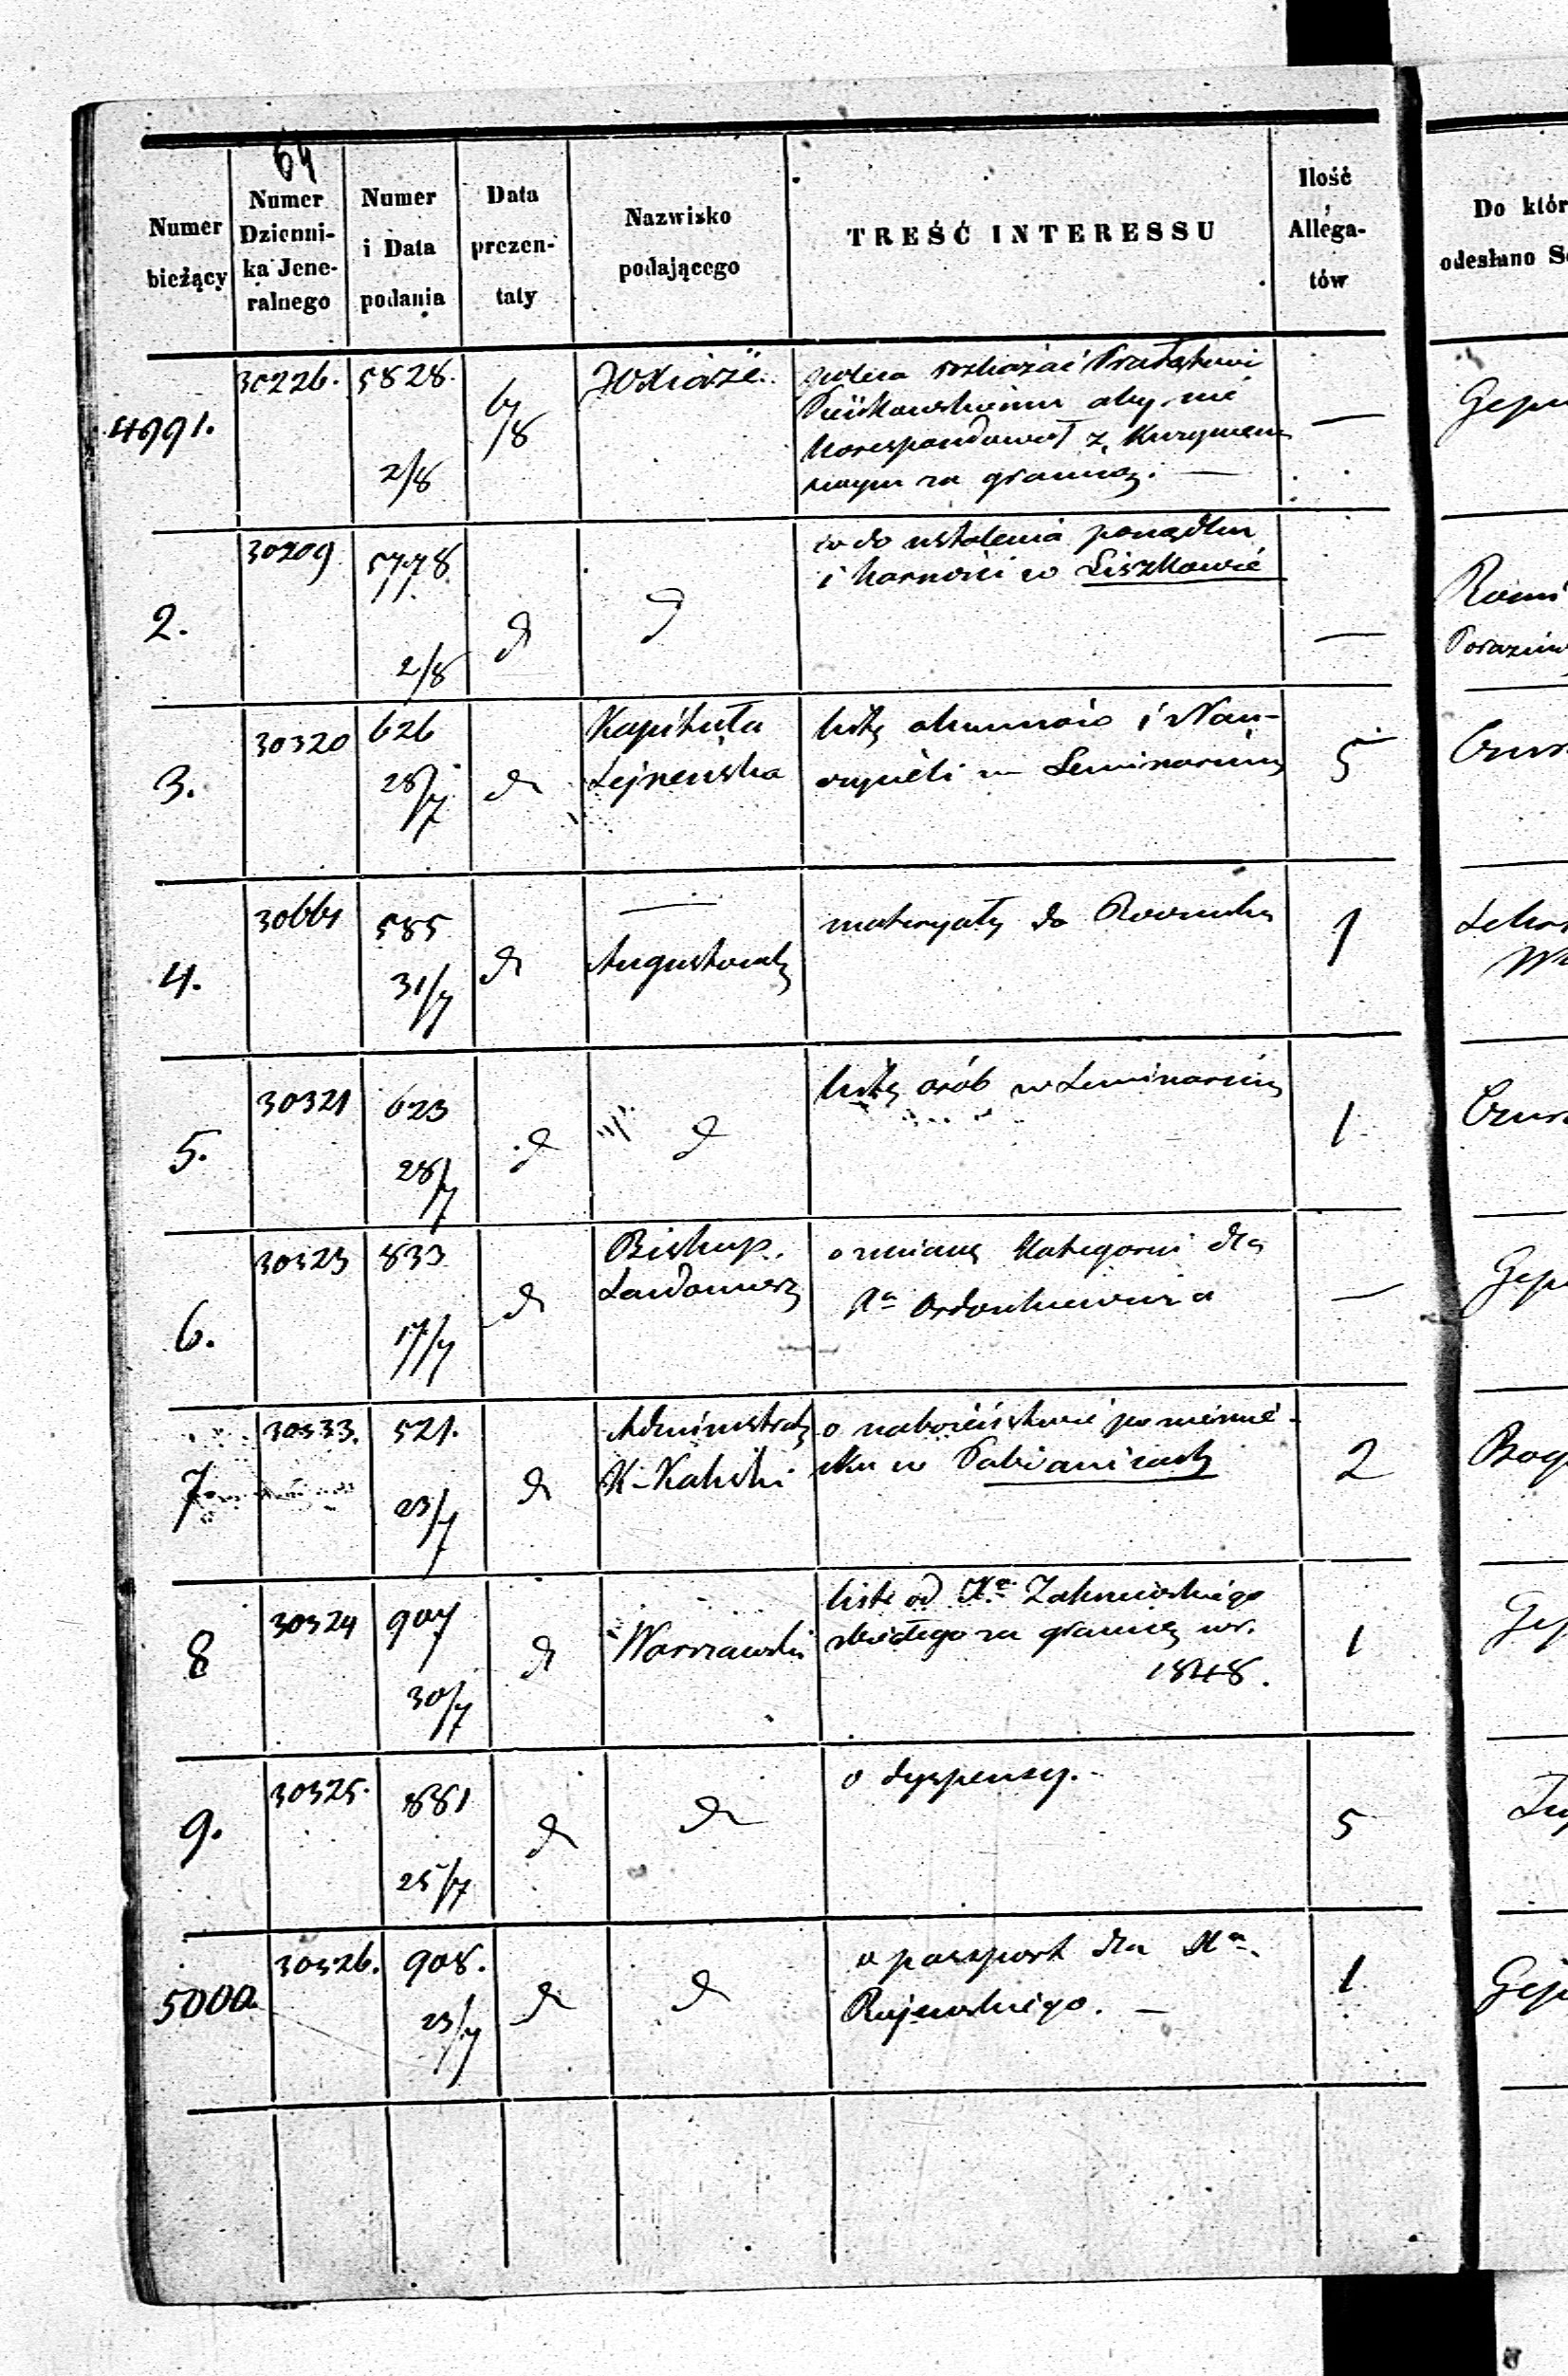 64
Numer bieżący
Numer Dzienni-ka Jene-ralnego
Numer i Data podania
Data prezen-taty
Nazwisko podającego
TREŚĆ INTERESSU
Ilość Allega-tów
Do któr
odesłano Se
4991.
30226.
5828.
2/8
6/8
JO Xiąże
poleca rozkazać Prałatowi
aby nie
korespondował z
za granicą. —
—
2.
30209
5778
2/8
d
d
co do ustalenia porządku
i karności w Liszkowie
—
3.
30320
626
28/7
d
Kapituła
Sejneńska
listę alumnów i Nau-
czycieli w Seminarium
5
4.
30661
585
31/7
d
—
Augustowsk
materyały do Rocznika
1
5.
30321
623
28/7
d
d
listę osób w Seminarium
1
6.
30323
833
17/7
d
Biskup.
Sandomiersk
o zmianę Kategorii dla
Xa
—
7
30333.
521.
23/7
d
Administrat
K-Kaliski
o nabożeństwie po niemie-
cku w Pabianicach
2
8
30324
907
30/7
d
Warszawski
liste od Xa Zakrzewskiego
zbiegłego za granicę w r.
1848.
1
9.
30325.
881
25/7
d
d
o dyspensy.
5
5000
30326.
908.
23/7
d
d
o paszport dla Xa.
Rujewskiego. —
1